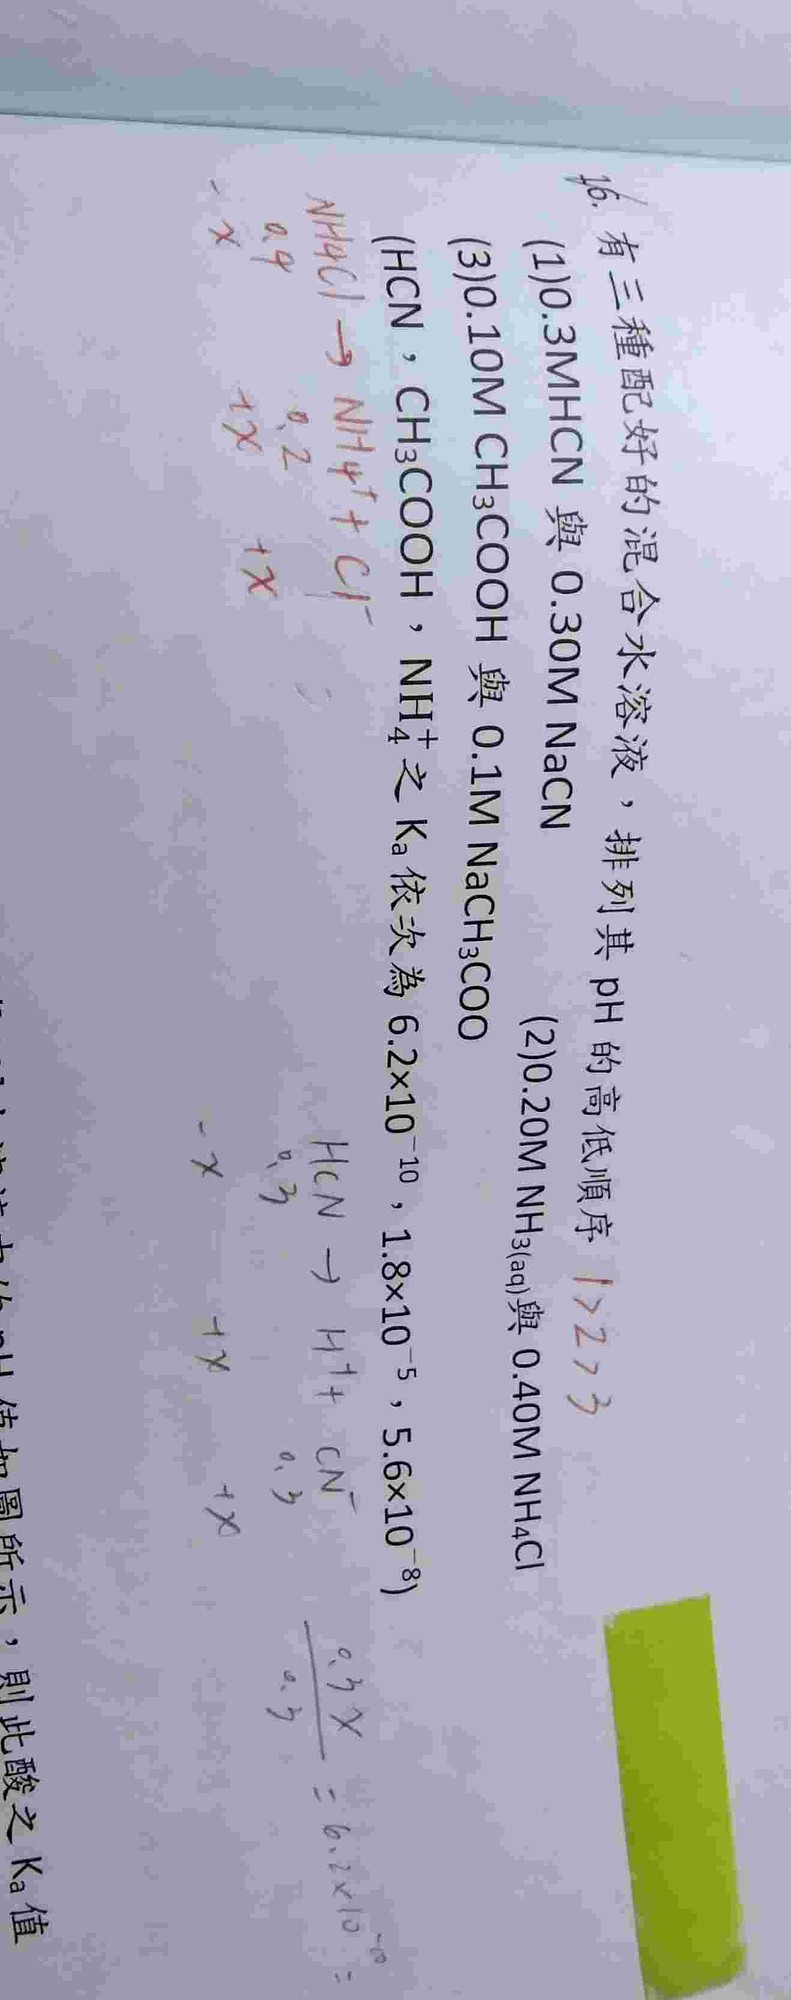 16. 有三種配好的混合水溶液，排列其 pH 的高低順序 1>2>3
(1)0.3MHCN 與 0.30M NaCN (2)0.20M NH₃(aq)與 0.40M NH₄Cl
(3)0.10M CH₃COOH 與 0.1M NaCH₃COO
(HCN，CH₃COOH，NH₄⁺之 Kₐ 依次為 6.2×10⁻¹⁰，1.8×10⁻⁵，5.6×10⁻⁸)
NH4Cl → NH4⁺ + Cl⁻
0.4 0.2
-x +x +x
HCN → H⁺ + CN⁻
0.3 0.3
-x +x +x
0.3x
0.3
= 6.2×10⁻¹⁰ =
pH 值如圖所示，則此酸之 Kₐ 值